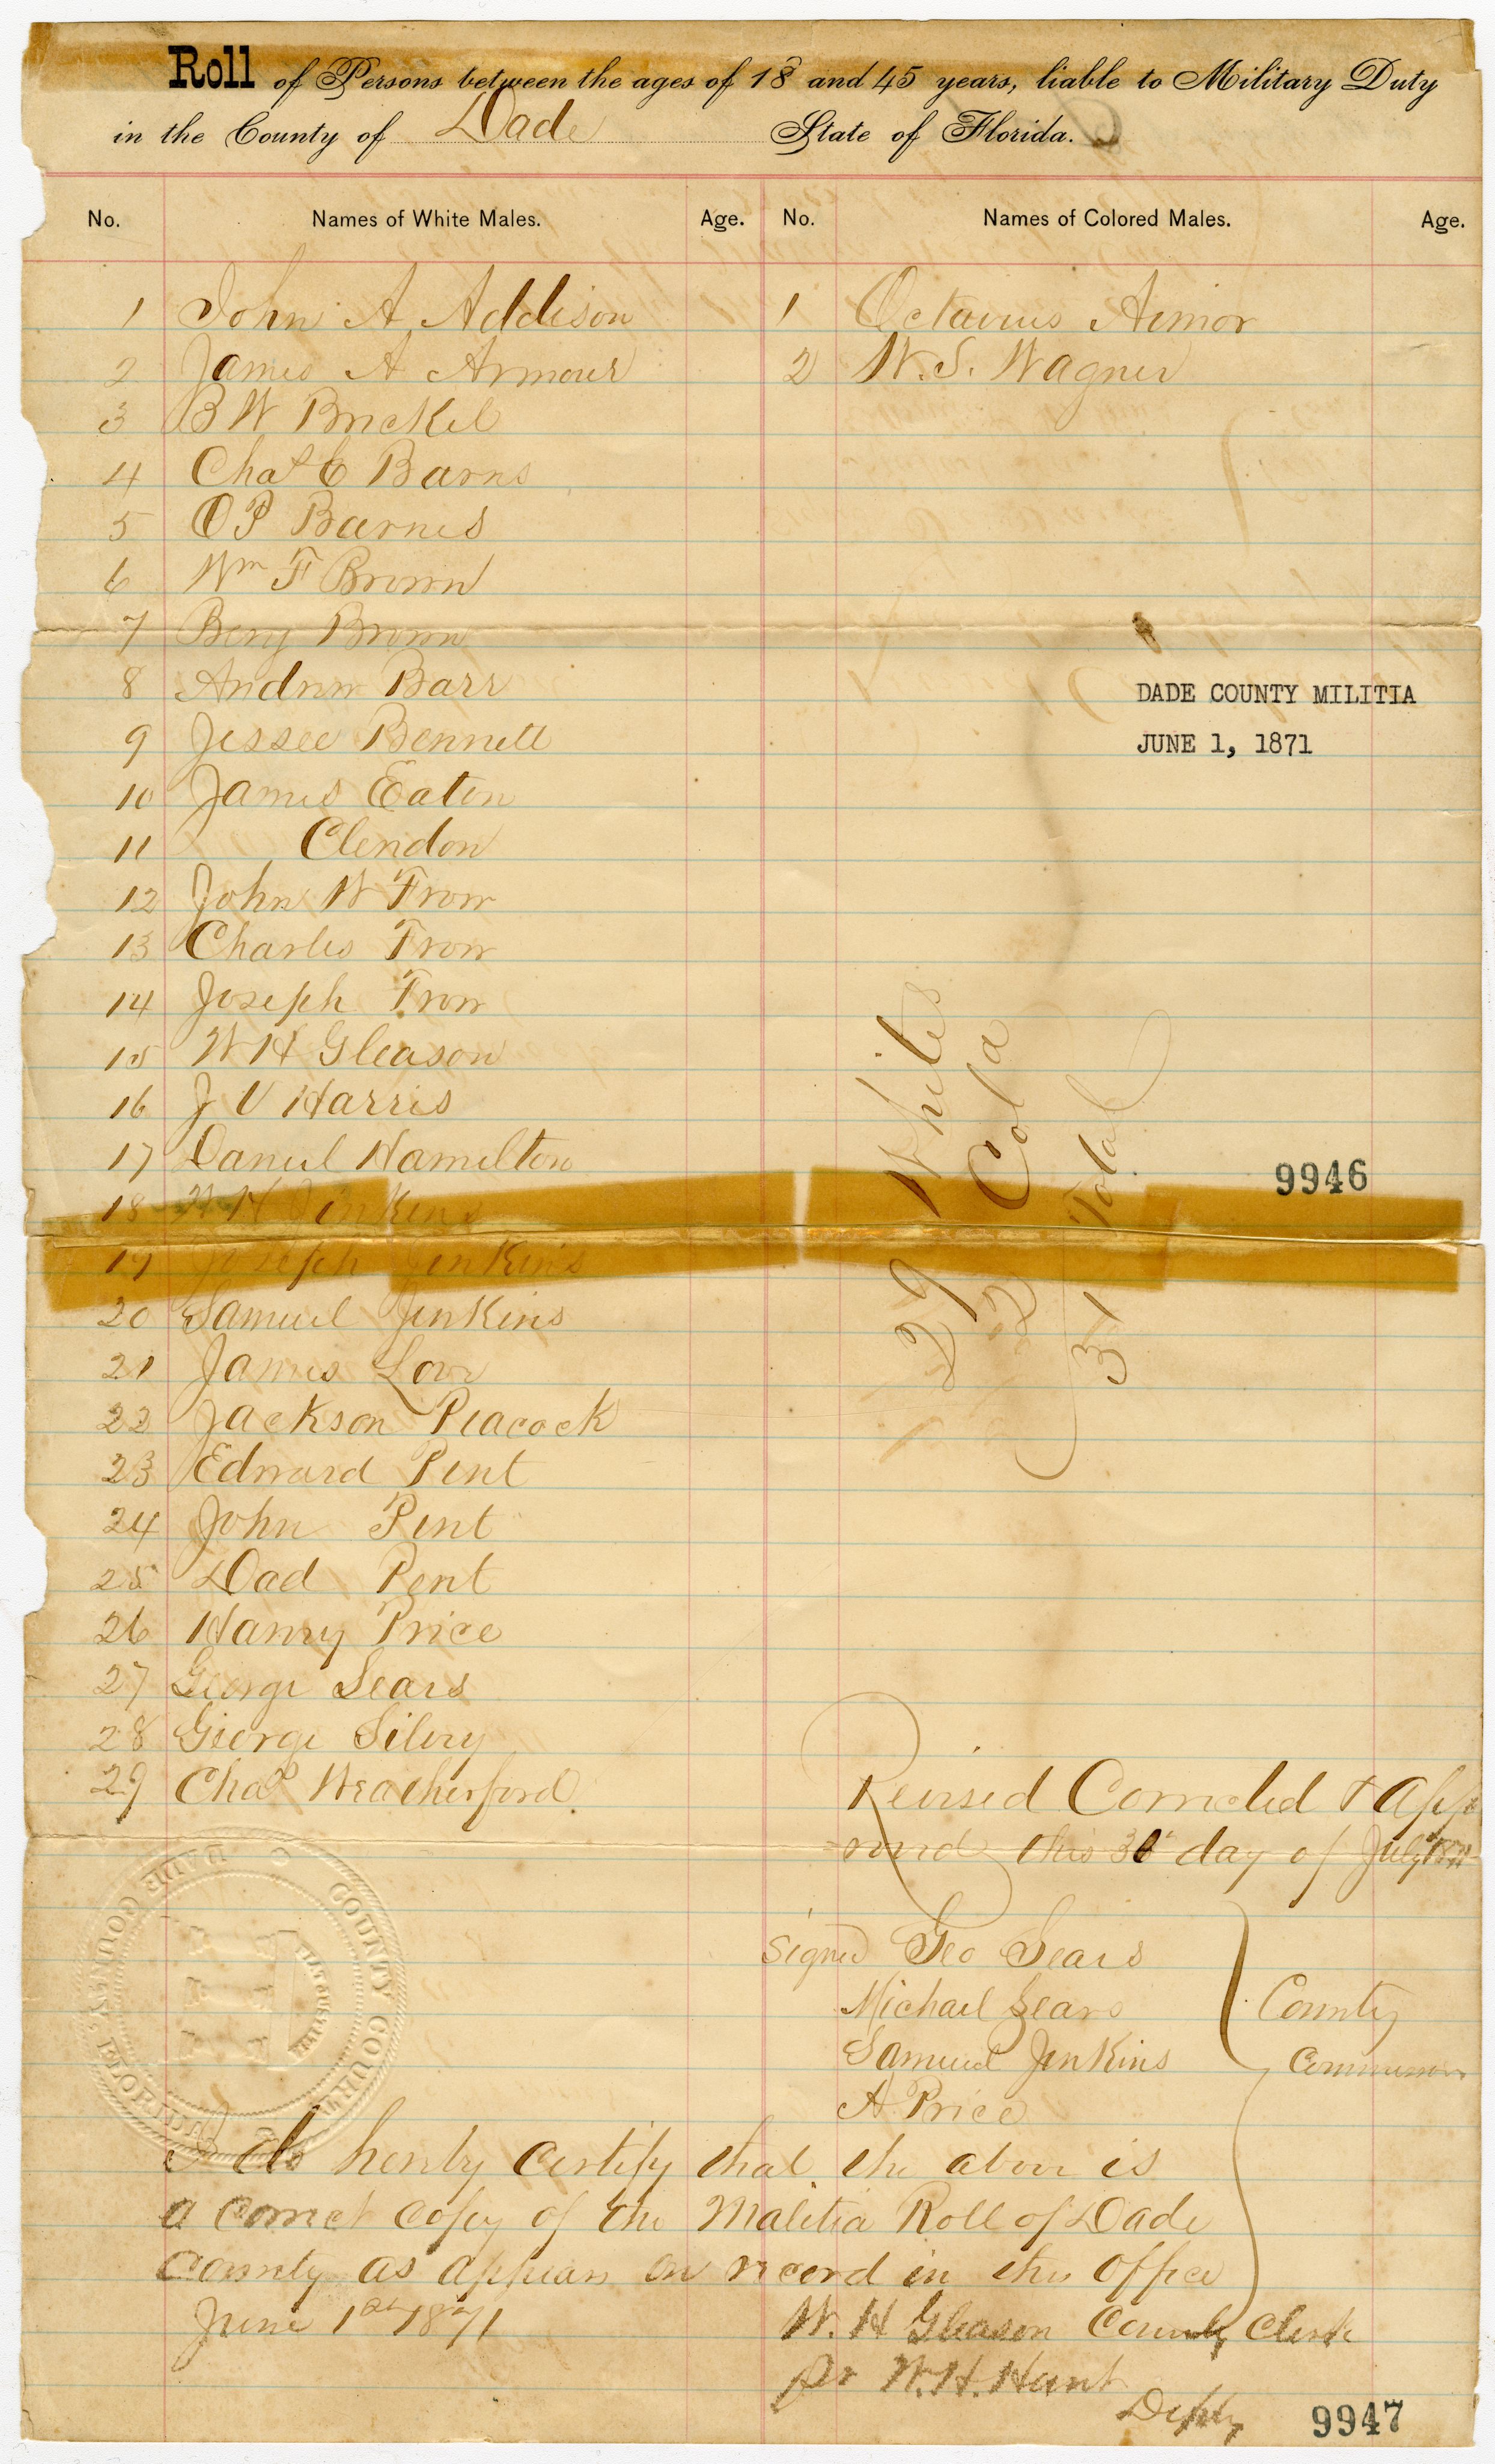 Roll of Persons between the ages of 18 and 45 years, liable to Military Duty
in the County of Dade State of Florida.
No. Names of White Males. Age. No. Names of Colored Males. Age.
1 John A Addison
2 James A Armour
3 B W Brickel
4 Chas C Barns
5 O P Barnes
6 Wm F Brown
7 Benj Brown
8 Andrew Barr
9 Jessee Bennett
10 James Eaton
11 Clendon
12 John W Frow
13 Charles Frow
14 Joseph Frow
15 W H Gleason
16 J V Harris
17 Daniel Hamilton
18 W H Jinkens
19 Joseph Jenkins
20 Samuel Jenkins
21 James Low
22 Jackson Peacock
23 Edward Pent
24 John Pent
25 Dad Pent
26 Hanry Price
27 George Sears
28 George Silery
29 Chas Weatherford
1 Octavius Aimor
2 W. S. Wagner
DADE COUNTY MILITIA
JUNE 1, 1871
29 Whites
2 Col
31 Total
9946
Revised Corrected & App
roved this day of July 1871
signed Geo Sears
Michael Sears
Samuel Jenkins
A Price
County
Commissioners
COUNTY COURT
DADE COUNTY FLORIDA
I do hereby certify that the above is
a correct copy of the Malitia Roll of Dade
County as appears on record in this office
June 1st 1871
W. H Gleason County Clerk
Per W. H. Hunt
Depty
9947